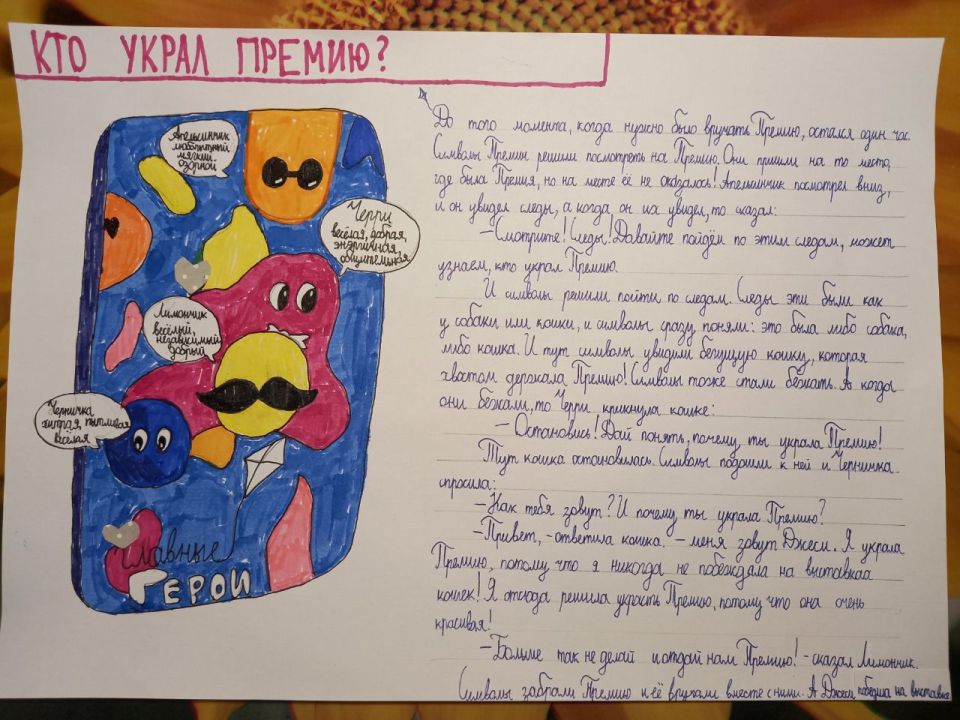 КТО УКРАЛ ПРЕМИЮ?
Апельсинчик
любопытный
мягкий
озорной
Черри
весёлая, добрая,
энэргичная,
общительная
Лимончик
весёлый,
независимый
добрый
Черничка
хитрая, пытливая
весёлая
Главные
ГЕРОИ
До того момента, когда нужно было вручать Премию, остался один час.
Символы Премии решили посмотреть на Премию. Они пришли на то место,
где была Премия, но на месте её не оказалось! Апельсинчик посмотрел вниз,
и он увидел следы, а когда он их увидел, то сказал:
- Смотрите! Следы! Давайте пойдём по этим следам, может
узнаем, кто украл Премию.
И символы решили пойти по следам. Следы эти были как
у собаки или кошки, и символы сразу поняли: это была либо собака,
либо кошка. И тут символы увидели бегущую кошку, которая
хвостом держала Премию! Символы тоже стали бежать. А когда
они бежали, то Черри крикнула кошке:
- Остановись! Дай понять, почему ты украла Премию!
Тут кошка остановилась. Символы подошли к ней и Черничка
спросила:
- Как тебя зовут? И почему ты украла Премию?
- Привет, - ответила кошка. - меня зовут Джеси. Я украла
Премию, потому что я никогда не побеждала на выставках
кошек! Я отсюда решила украсть Премию, потому что она очень
красивая!
- Больше так не делай и отдай нам Премию! - сказал Лимончик.
Символы забрали Премию и её вручали вместе с ними. А Джеси победила на выставке